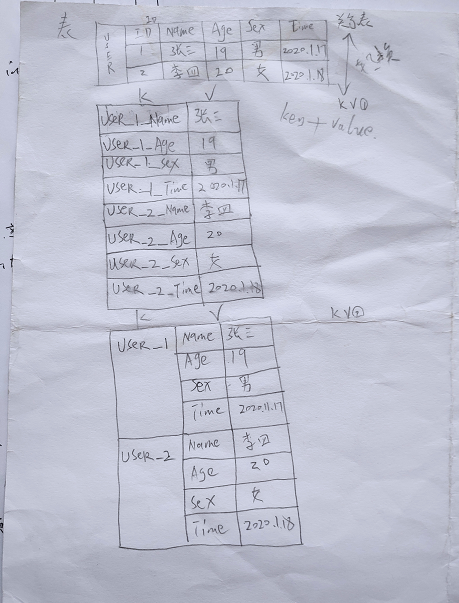 表
USER
ID Name Age Sex Time
1 张三 19 男 2020.1.17
2 李四 20 女 2020.1.18
K V
KV①
key+value.
USER_1_Name 张三
USER_1_Age 19
USER_1_Sex 男
USER_1_Time 2020.1.17
USER_2_Name 李四
USER_2_Age 20
USER_2_Sex 女
USER_2_Time 2020.1.18
K V
KV②
USER_1 Name 张三
Age 19
Sex 男
Time 2020.1.17
USER_2 Name 李四
Age 20
Sex 女
Time 2020.1.18